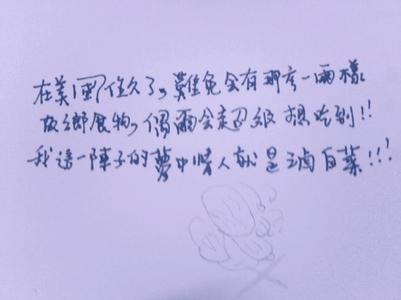 在美國住久了,難免會有那麼一兩樣
故鄉食物,偶爾會超級想吃到!!
我這一陣子的夢中情人就是滷白菜!!!